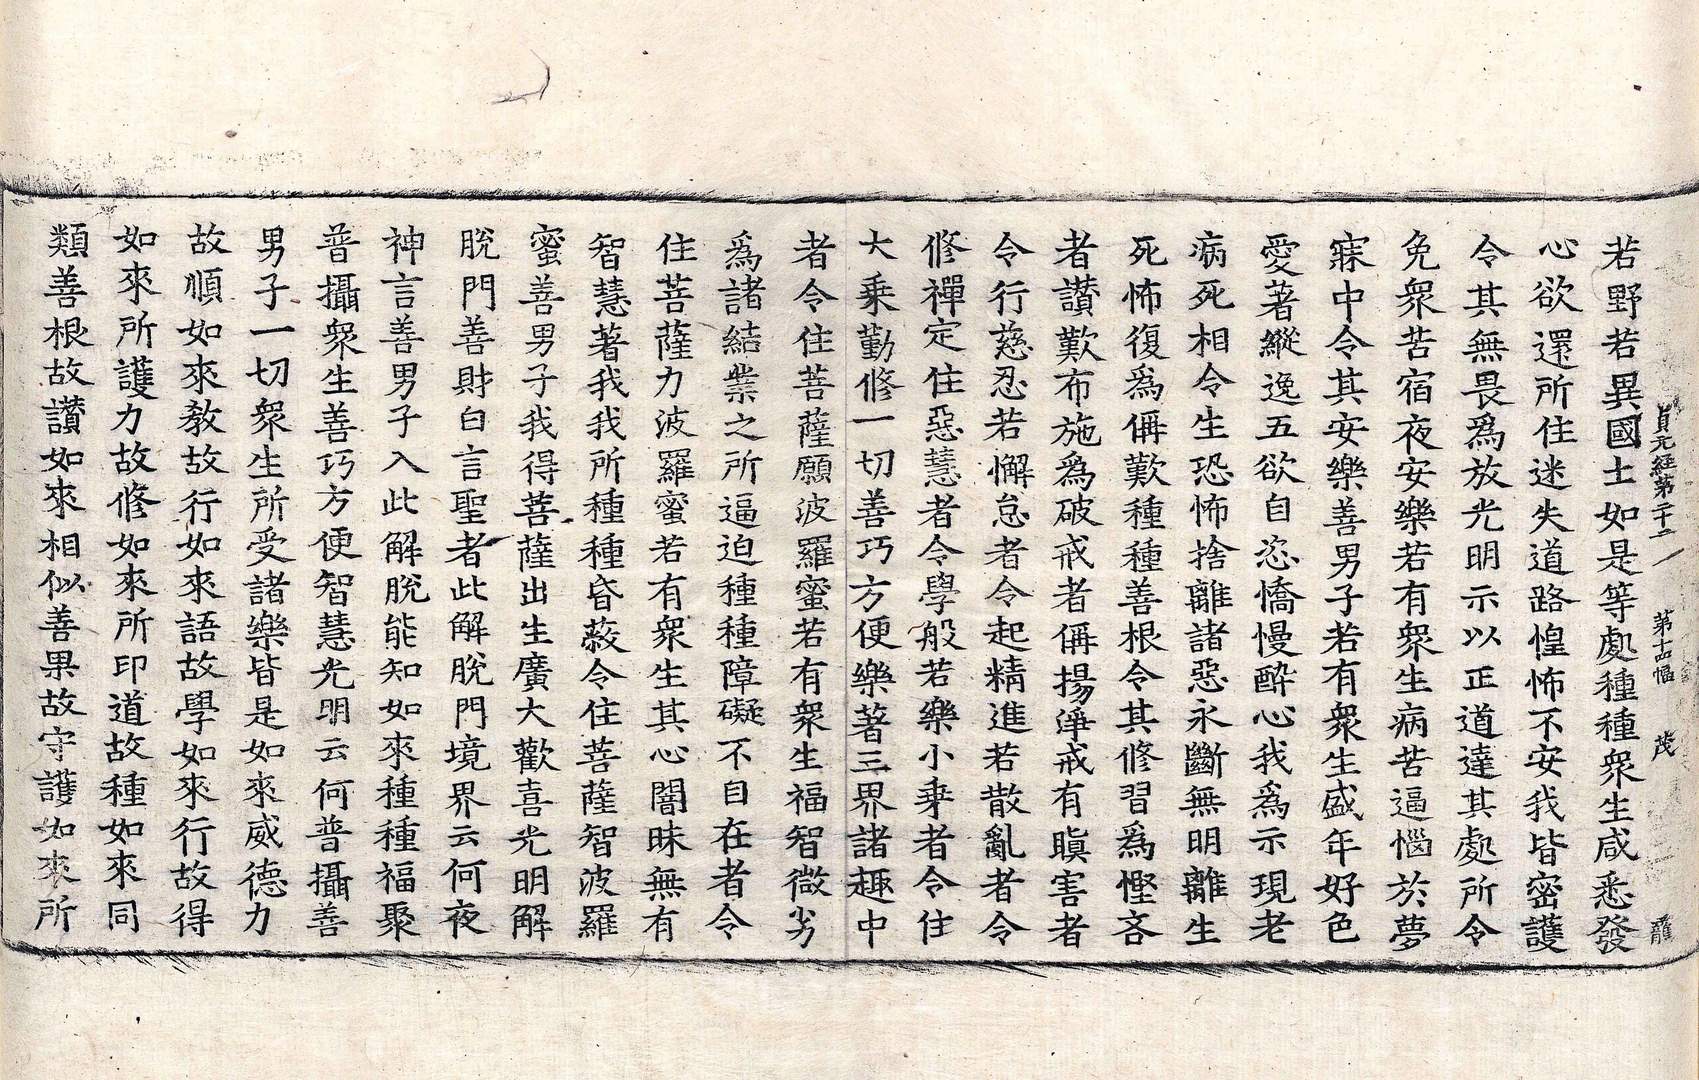 貞元經第二十二　第十四幅　茂
若野若異國土如是等處種種衆生咸悉發
心欲還所住迷失道路惶怖不安我皆密護
令其無畏爲放光明示以正道達其處所令
免衆苦宿夜安樂若有衆生病苦逼惱於夢
寐中令其安樂善男子若有衆生盛年好色
愛著縱逸五欲自恣憍慢醉心我爲示現老
病死相令生恐怖捨離諸惡永斷無明離生
死怖復爲偁歎種種善根令其修習爲慳吝
者讃歎布施爲破戒者偁揚淨戒有瞋害者
令行慈忍若懈怠者令起精進若散亂者令
修禪定住惡慧者令學般若樂小乗者令住
大乗勤修一切善巧方便樂著三界諸趣中
者令住菩薩願波羅蜜若有衆生福智微劣
爲諸結業之所逼迫種種障礙不自在者令
住菩薩力波羅蜜若有衆生其心闇昧無有
智慧著我我所種種昏蔽令住菩薩智波羅
蜜善男子我得菩薩出生廣大歡喜光明解
脫門善財白言聖者此解脫門境界云何夜
神言善男子入此解脫能知如來種種福聚
普攝衆生善巧方便智慧光明云何普攝善
男子一切衆生所受諸樂皆是如來威德力
故順如來敎故行如來語故學如來行故得
如來所護力故修如來所印道故種如來同
類善根故讃如來相似善果故守護如來所